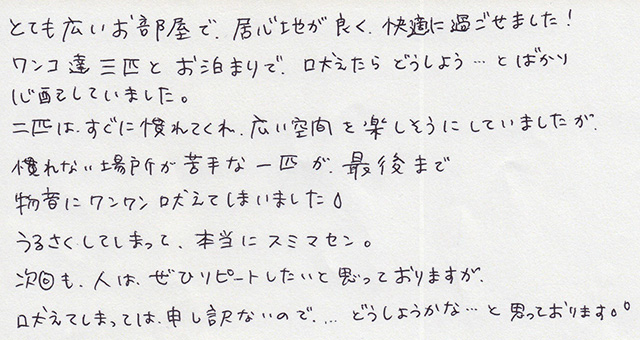 とても広いお部屋で、居心地が良く、快適に過ごせました！
ワンコ達三匹とお泊まりで、吠えたらどうしよう…とばかり
心配していました。
二匹は、すぐに慣れてくれ、広い空間を楽しそうにしていましたが、
慣れない場所が苦手な一匹が、最後まで
物音にワンワン吠えてしまいました
うるさくしてしまって、本当にスミマセン。
次回も、人は、ぜひリピートしたいと思っておりますが、
吠えてしまっては、申し訳ないので、…どうしようかな…と思っております。